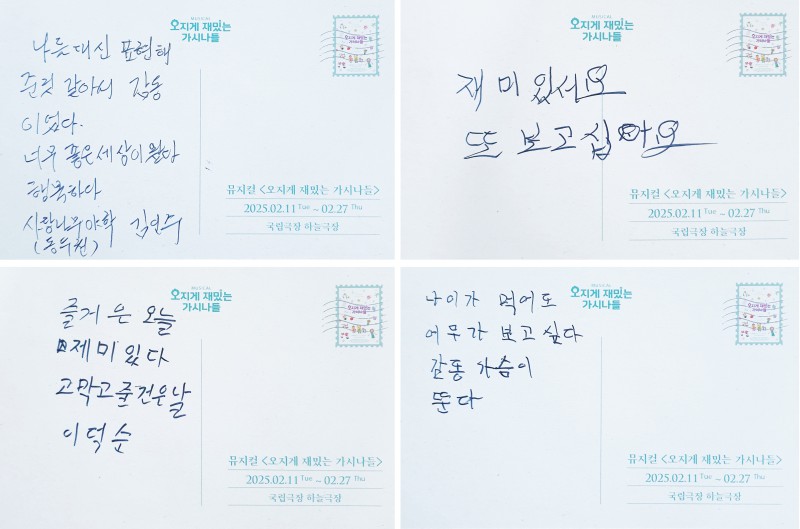 MUSICAL
오지게 재밌는
가시나들
나를대신 표현해
준것 같아서 감동
이었다.
너무 좋은세상이 왔다
행복하다
사랑나무야학
뮤지컬 <오지게 재밌는 가시나들>
2025.02.11 Tue ~ 02.27 Thu
국립극장 하늘극장
MUSICAL
오지게 재밌는
가시나들
재미있서요
또 보고십어요
뮤지컬 <오지게 재밌는 가시나들>
2025.02.11 Tue ~ 02.27 Thu
국립극장 하늘극장
MUSICAL
오지게 재밌는
가시나들
즐거은 오늘
제미있다
고막고 즐건은날
이덕순
뮤지컬 <오지게 재밌는 가시나들>
2025.02.11 Tue ~ 02.27 Thu
국립극장 하늘극장
MUSICAL
오지게 재밌는
가시나들
나이가 먹어도
어무가 보고싶다
갈동 가슴이
뚠다
뮤지컬 <오지게 재밌는 가시나들>
2025.02.11 Tue ~ 02.27 Thu
국립극장 하늘극장